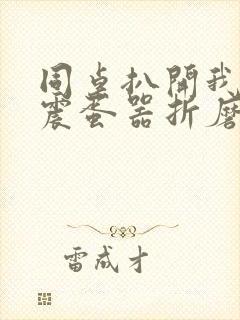 同桌扒開我
震蛋器折磨
雷成才